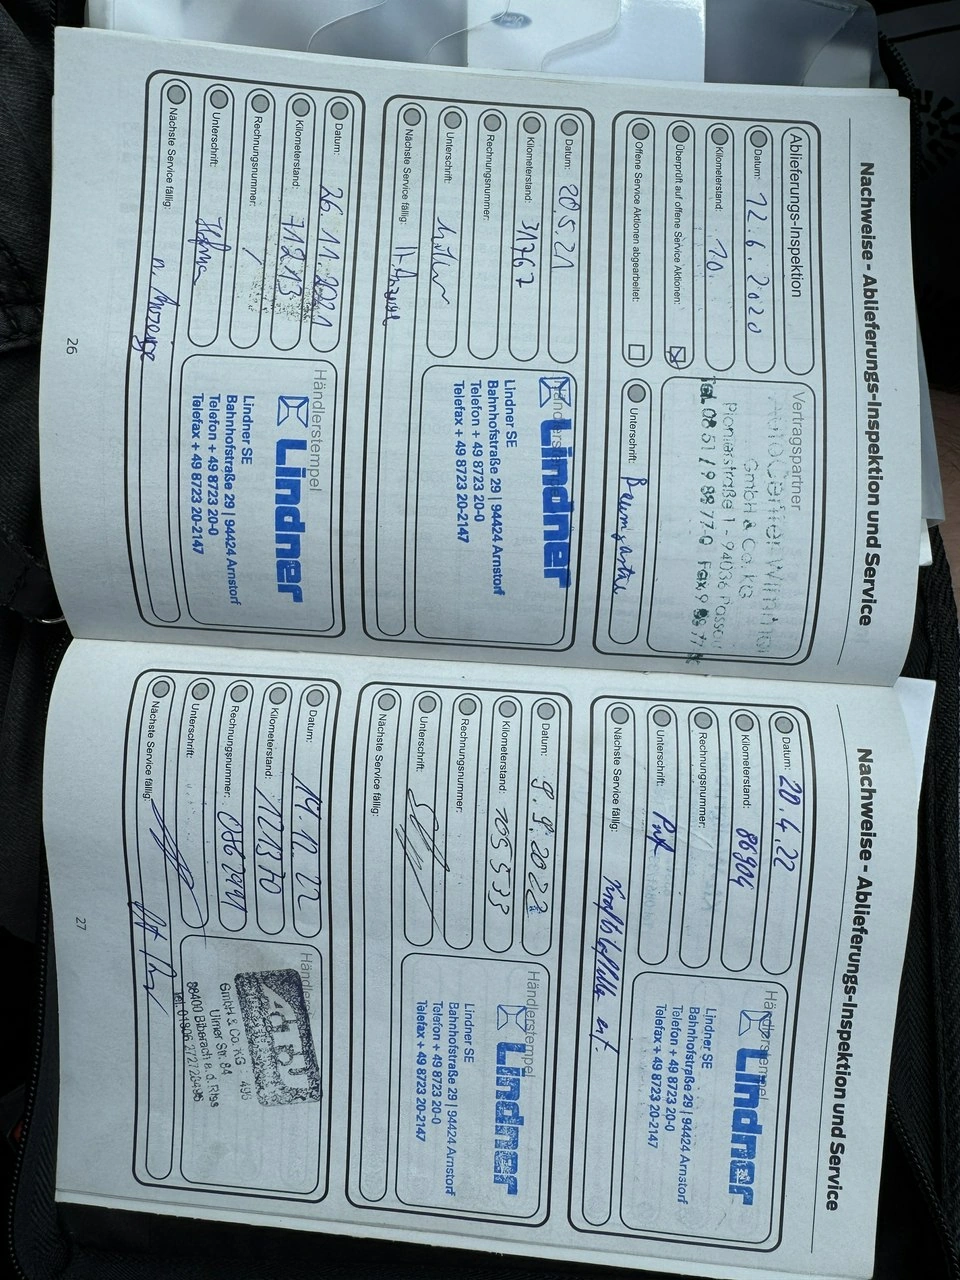 Nachweise - Ablieferungs-Inspektion und Service
Ablieferungs-Inspektion
Datum: 12.6.2020
Kilometerstand: 10.
Überprüft auf offene Service Aktionen:
Offene Service Aktionen abgearbeitet:
Vertragspartner
GmbH & Co. KG
Pionierstraße 1 - 94036 Passau
Unterschrift:
Datum: 20.5.21
Kilometerstand: 31767
Rechnungsnummer:
Unterschrift:
Nächste Service fällig:
Händlerstempel
Lindner
Lindner SE
Bahnhofstraße 29 | 94424 Arnstorf
Telefon + 49 8723 20-0
Telefax + 49 8723 20-2147
Datum: 26.11.2021
Kilometerstand: 71213
Rechnungsnummer: /
Unterschrift:
Nächste Service fällig: n. Anzeige
Händlerstempel
Lindner
Lindner SE
Bahnhofstraße 29 | 94424 Arnstorf
Telefon + 49 8723 20-0
Telefax + 49 8723 20-2147
26
Nachweise - Ablieferungs-Inspektion und Service
Datum: 20.4.22
Kilometerstand: 86904
Rechnungsnummer:
Unterschrift:
Nächste Service fällig:
Händlerstempel
Lindner
Lindner SE
Bahnhofstraße 29 | 94424 Arnstorf
Telefon + 49 8723 20-0
Telefax + 49 8723 20-2147
Datum: 9.9.2022
Kilometerstand: 105533
Rechnungsnummer:
Unterschrift:
Nächste Service fällig:
Händlerstempel
Lindner
Lindner SE
Bahnhofstraße 29 | 94424 Arnstorf
Telefon + 49 8723 20-0
Telefax + 49 8723 20-2147
Datum: 14.12.22
Kilometerstand: 112370
Rechnungsnummer:
Unterschrift:
Nächste Service fällig:
GmbH & Co. KG 495
Ulmer Str. 84
88400 Biberach a. d. Riss
27